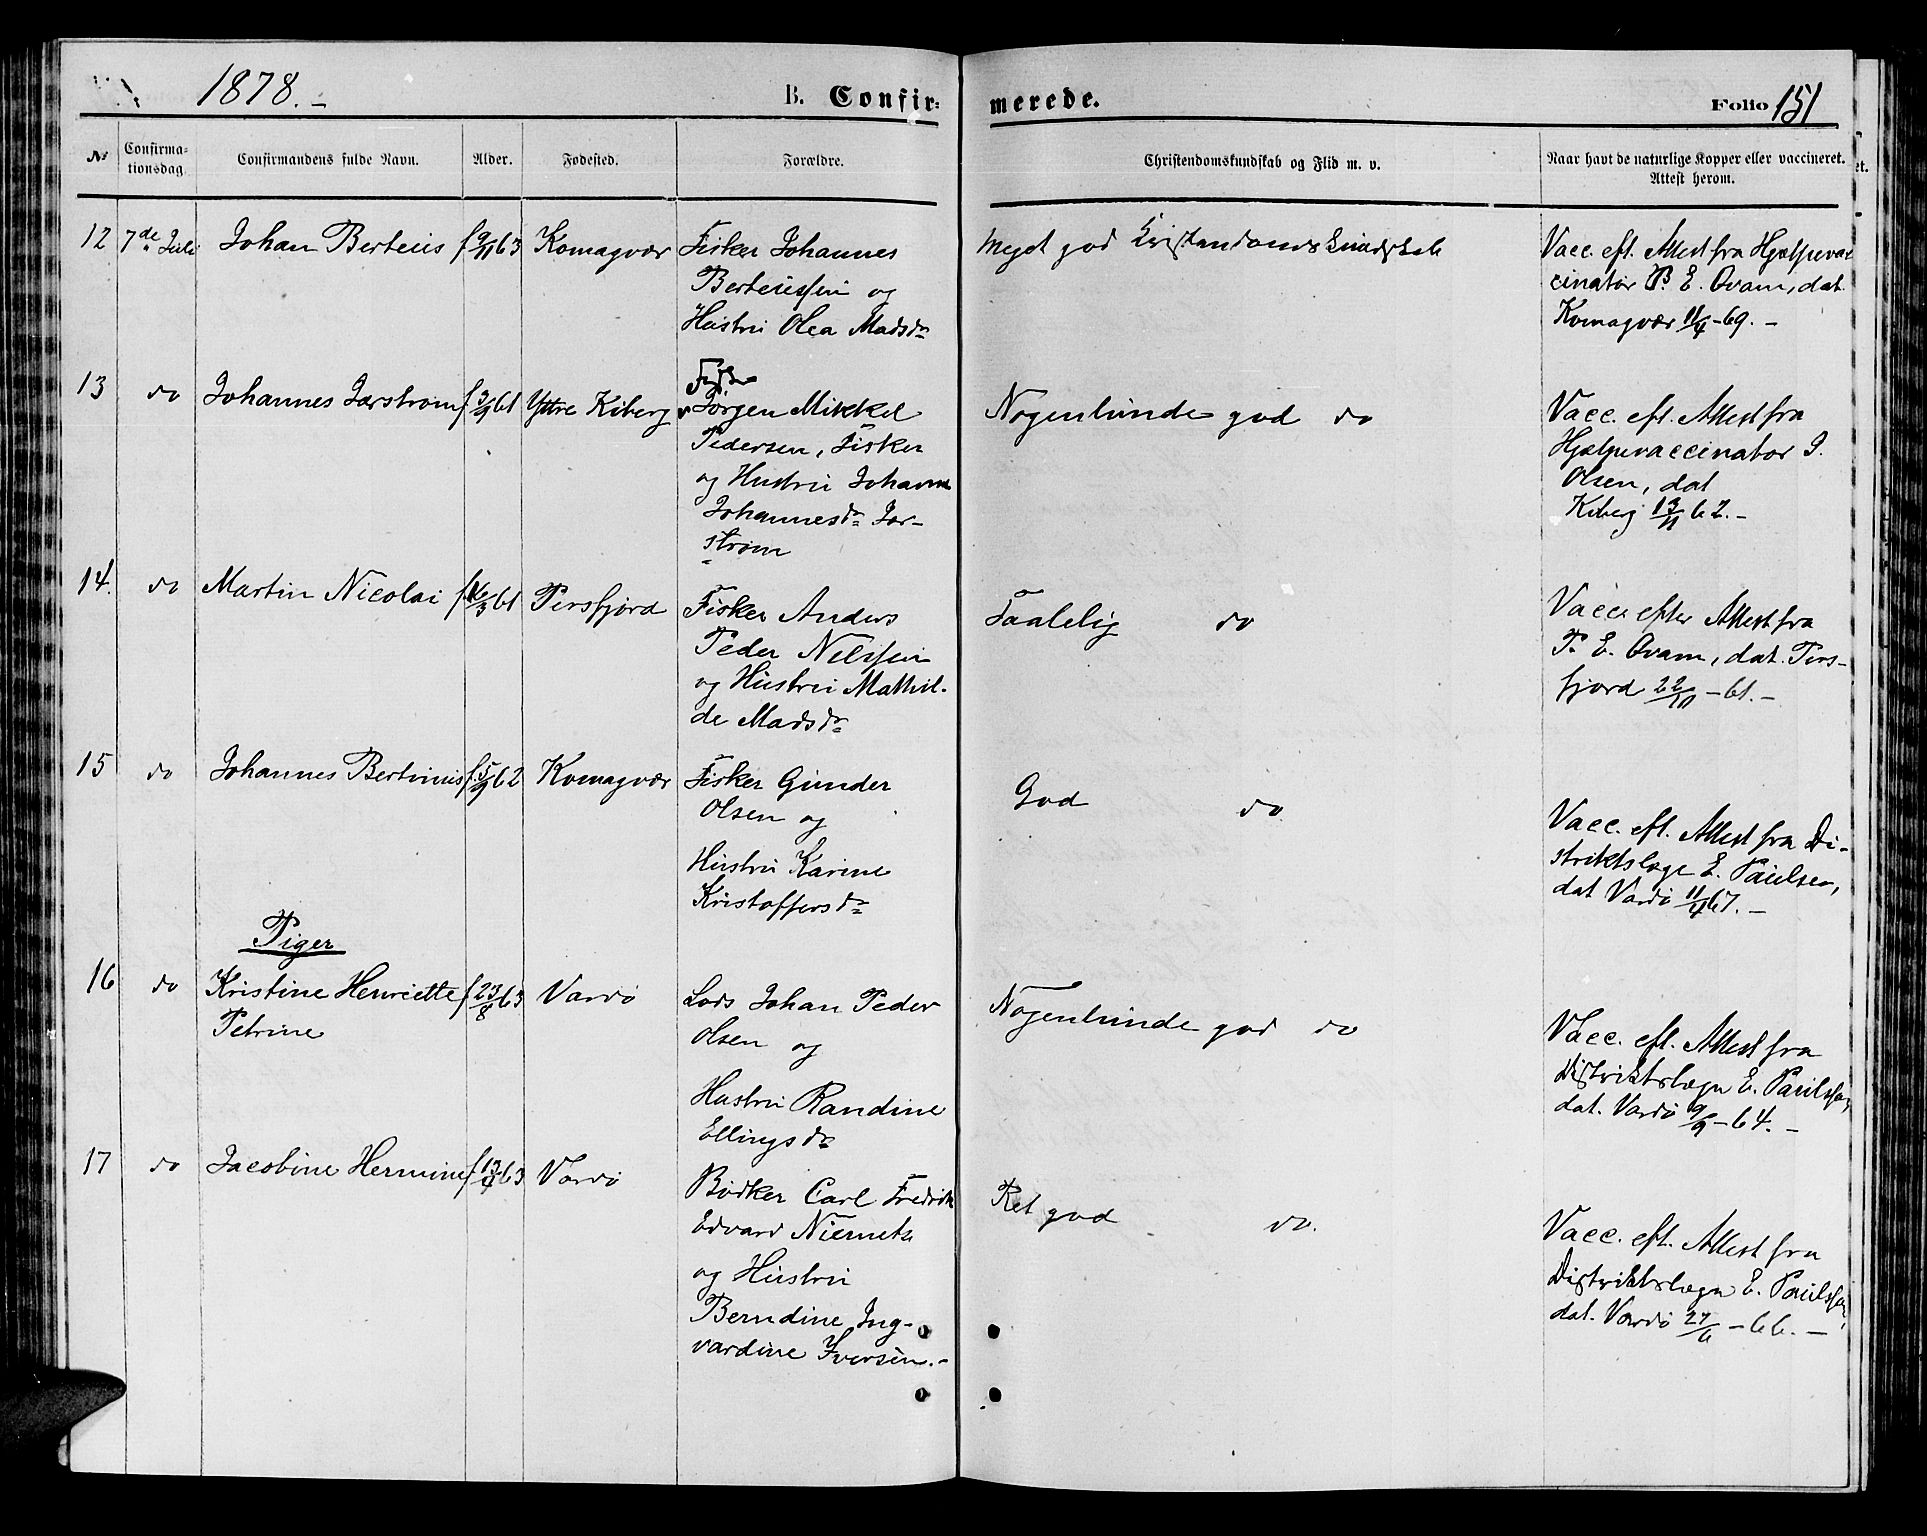 1878.-
B. Confir-
merede.
Folio 151
No
Confirma-
tionsdag.
Confirmandens fulde Navn.
Alder.
Fødested.
Forældre.
Christendomskundskab og Flid m. v.
Naar havt de naturlige Kopper eller vaccineret.
Attest herom.
12 7de Juli Johan Berteus f 9/11 63 Komagvær Fisker Johannes
Berteussen og
Hustru Olea Madsdr
Meget god Kristendomskundskab
Vacc. eft. Attest fra Hjælpevac
cinatør P. E. Qvam, dat.
Komagvær 11/4 -69. -
13 do Johannes Jarstrøm f. 3/9 61 Yttre Kiberg Jørgen Mikkel
Pedersen, Fisker
og Hustru Johanne
Johannesdr Jar-
strøm
Nogenlunde god do
Vacc. eft. Attest fra
Hjælpevaccinatør J.
Olsen, dat
Kiberg 13/11 62.-
14. do Martin Nicolai f. 16/3 61 Persfjord Fisker Anders
Peder Nilssen
og Hustru Mathil-
de Madsdr
Taalelig do
Vacc. efter Attest fra
P. E. Qvam, dat. Pers-
fjord 22/10 -61.-
15 do Johannes Bertinius f. 5/9 62 Komagvær Fisker Gunder
Olsen og
Hustru Karine
Kristoffersdr
God do
Vacc. eft. Attest fra Di-
striktslæge E. Paulsen,
dat Vardø 11/4 67. -
Piger
16 do Kristine Henriette f. 23/8 63 Vardø Lods Johan Peder
Petrine
Olsen og
Hustru Randine
Ellingsdr
Nogenlunde god do
Vacc. eft. Attest fra
Distriktslæge E. Paulssen,
dat. Vardø 9/9 -64. -
17 do Jacobine Hermine f. 13/4 63 Vardø Bødker Carl Fredrik
Edvard Niemetz
og Hustru
Berndine Ing-
vardine Iversen.-
Ret god do.
Vacc. eft. Attest fra
Distriktslæge E. Paulssen,
dat. Vardø 27/6 -66. -